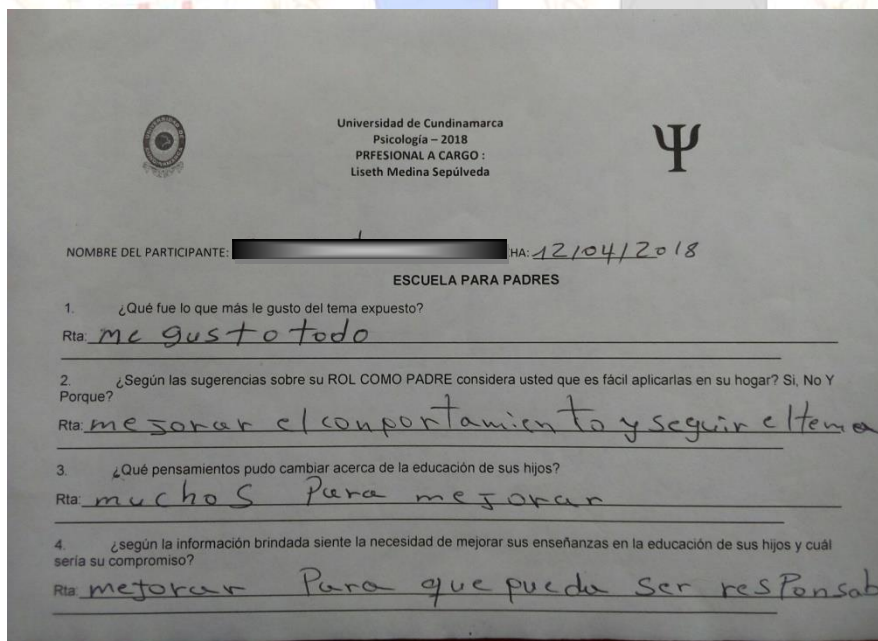 Universidad de Cundinamarca
Psicología – 2018
PRFESIONAL A CARGO :
Liseth Medina Sepúlveda
NOMBRE DEL PARTICIPANTE: HA: 12/04/2018
ESCUELA PARA PADRES
1. ¿Qué fue lo que más le gusto del tema expuesto?
Rta: me gusto todo
2. ¿Según las sugerencias sobre su ROL COMO PADRE considera usted que es fácil aplicarlas en su hogar? Si, No Y
Porque?
Rta: mejorar el conportamiento y seguir el tema
3. ¿Qué pensamientos pudo cambiar acerca de la educación de sus hijos?
Rta: muchos Para mejorar
4. ¿según la información brindada siente la necesidad de mejorar sus enseñanzas en la educación de sus hijos y cuál
sería su compromiso?
Rta: mejorar Para que pueda ser resPonsab